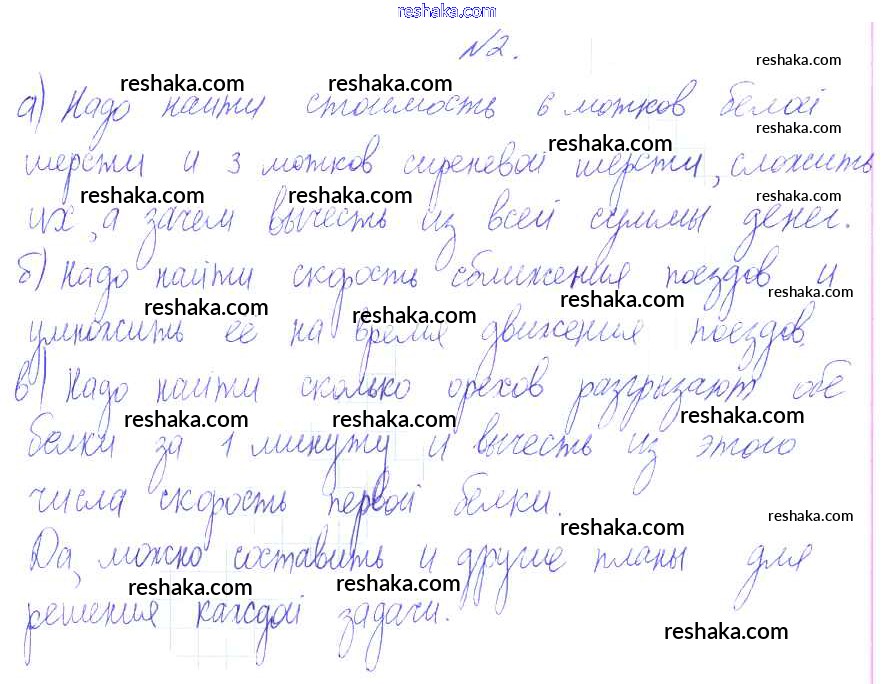 reshaka.com
№2.
reshaka.com
reshaka.com reshaka.com
а) Надо найти стоимость 6 мотков белой
reshaka.com
reshaka.com
шерсти и 3 мотков сиреневой шерсти, сложить
reshaka.com reshaka.com reshaka.com
их, а зачем вычесть из всей суммы денег.
б) Надо найти скорость сближения поездов и
reshaka.com
reshaka.com reshaka.com reshaka.com
умножить ее на время движения поездов.
в) Надо найти сколько орехов разгрызают обе
reshaka.com reshaka.com reshaka.com
белки за 1 минуту и вычесть из этого
числа скорость первой белки.
reshaka.com reshaka.com
Да, можно составить и другие планы для
reshaka.com reshaka.com
решения каждой задачи.
reshaka.com